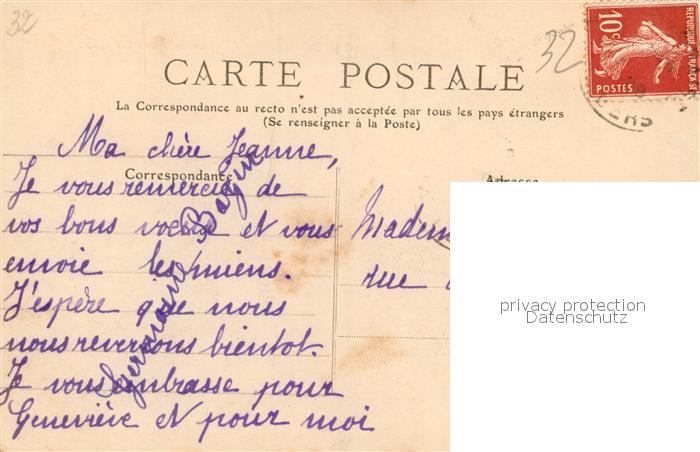 32
32
10c
POSTES
RÉPUBLIQUE FRANÇAISE
CARTE POSTALE
La Correspondance au recto n'est pas acceptée par tous les pays étrangers
(Se renseigner à la Poste)
Correspondance
Adresse
Ma chère Jeanne,
Je vous remercie de
vos bons voeux et vous
envoie les miens.
J'espère que nous
nous reverrons bientot.
Je vous embrasse pour
Geneviève et pour moi
Germaine
Madem
rue
privacy protection
Datenschutz